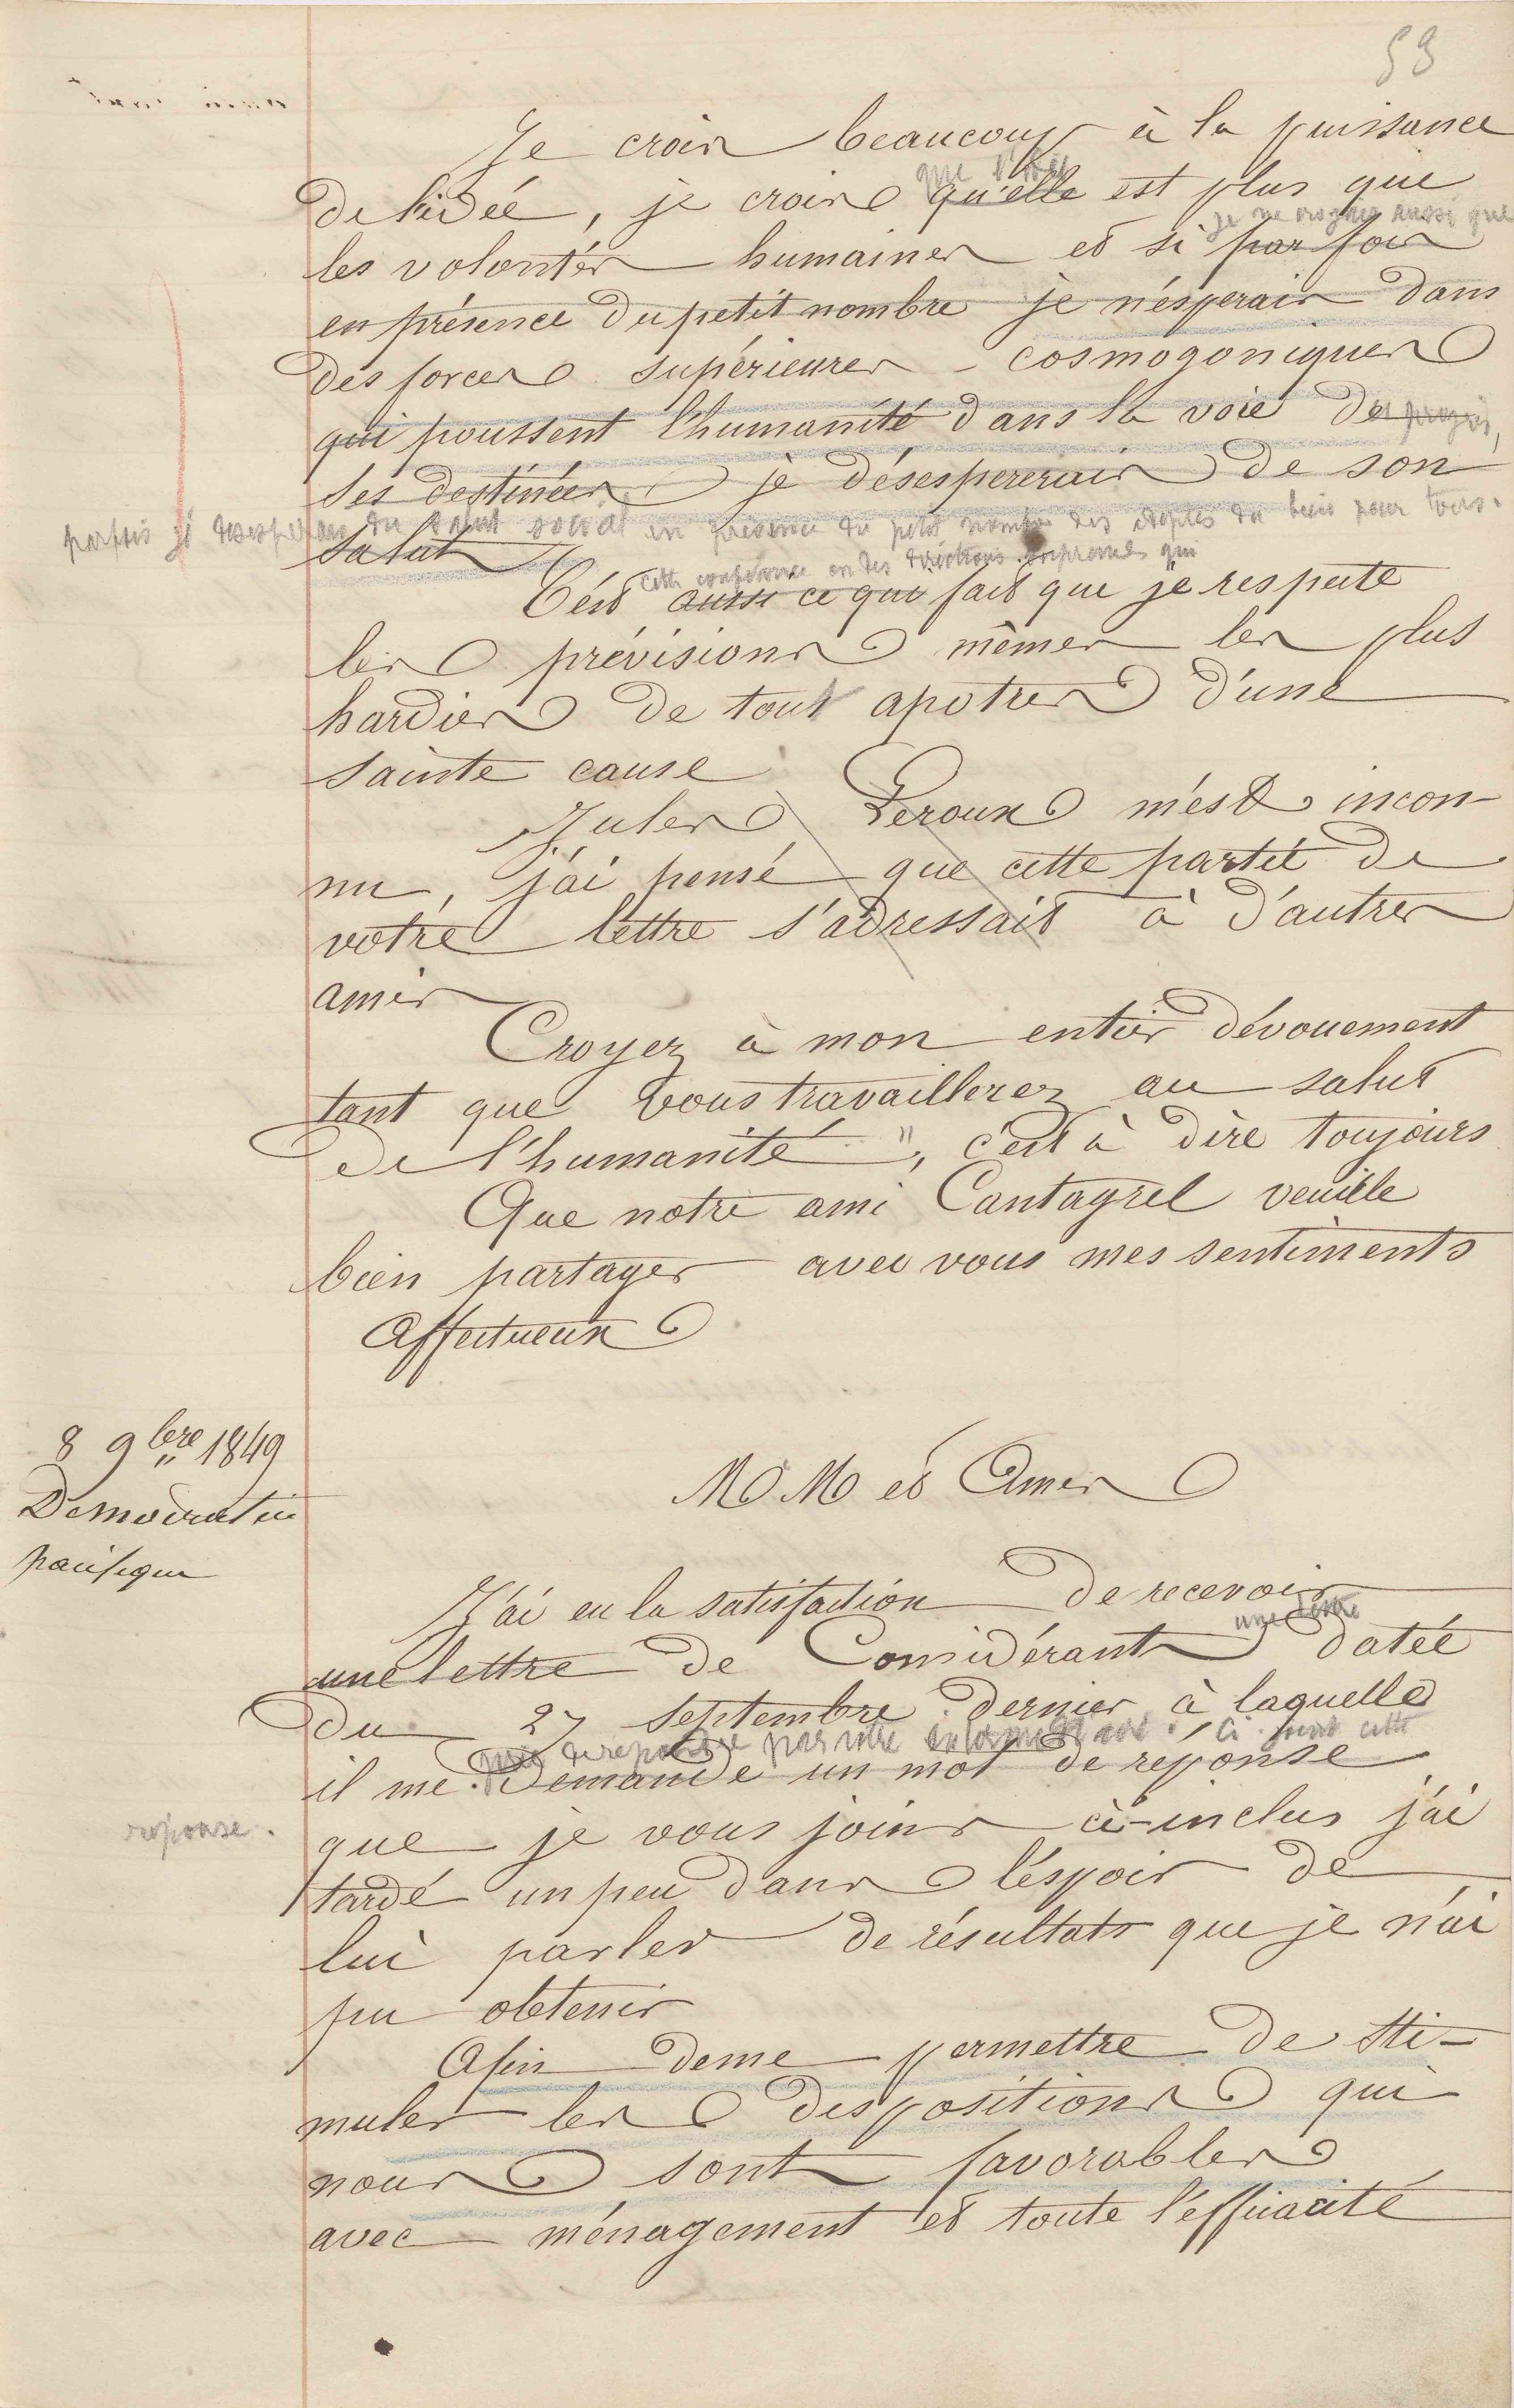 59
Je crois beaucoup à la puissance
que l'idée
de lidée, je crois qu'elle est plus que
je ne croyais aussi que
les volontés humaines et si par fois
en présence du petit nombre je n'ésperais dans
des forces supérieures - cosmogoniques
qui poussent l'humanité dans la voie de
des progrès,
ses destinées je désespererais de son
parfois je desesperais du salut social en présence du petit nombre des adeptes du bien pour tous.
salut
cette confiance en des directions suprêmes qui
C'est aussi ce qui fait que je respecte
les prévisions mêmes les plus
hardies de tout apotres d'une
sainte cause
Jules Leroux m'est incon-
nu, j'ai pensé que cette partie de
votre lettre s'adressait à d'autres
amis
Croyez à mon entier dévouement
tant que vous travaillerez au salut
de l'humanité", c'est à dire toujours
Que notre ami Cantagrel veuille
bien partager avec vous mes sentiments
Affectueux
8 9bre 1849
Démocratie
pacifique
MM et Amis
J'ai eu la satisfaction de recevoir
une lettre
une lettre de Considérant datée
du 27 septembre dernier à laquelle
de repondre par votre ci joint cette
il me demande un mot de réponse
reponse.
que je vous joins ci-inclus j'ai
tardé un peu dans l'éspoir de
lui parler de résultats que je n'ai
pu obtenir
Afin de me permettre de sti-
muler les dispositions qui
nous sont favorables
avec ménagement et toute l'efficacité